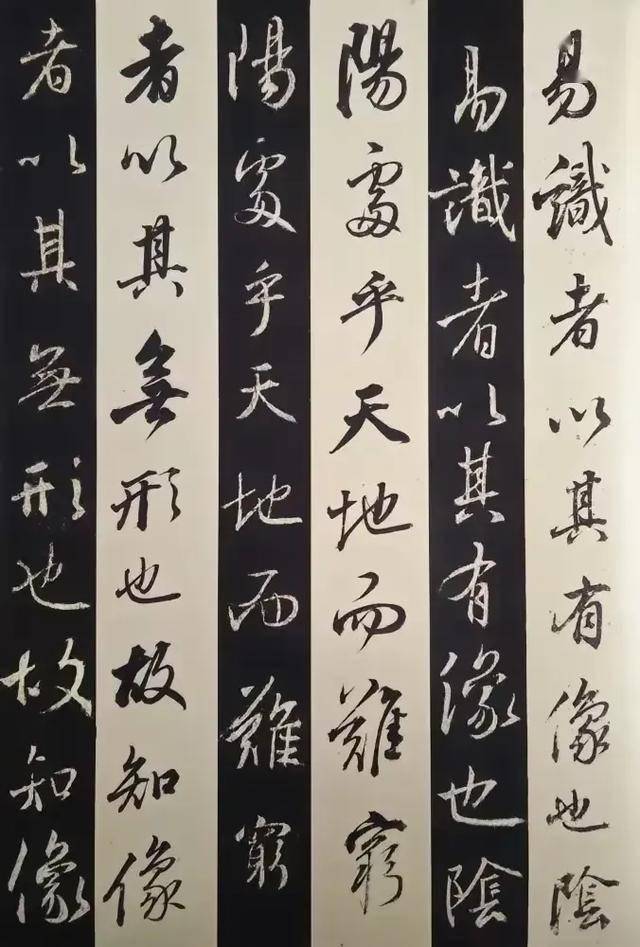 易識者以其有像也陰
易識者以其有像也陰
陽處乎天地而難窮
陽處乎天地而難窮
者以其無形也故知像
者以其無形也故知像